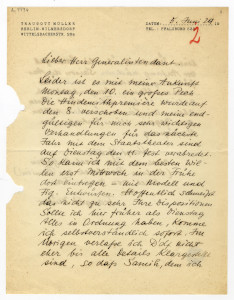 TRAUGOTT MÜLLER
BERLIN-WILMERSDORF
WITTELSBACHERSTR.
DATUM: 8. Juni 29
TEL.: PFALZBURG
2
Lieber Herr Generalintendant.
Leider ist es mir meine
Montag, den 10. ein grosses
Die premiere wurde auf
den 8. verschoben und mein end-
gültigen für mich sehr wichtigen
Verhandlungen für das
Jahr mit dem Staatstheater sind
auf Dienstag den 11. fest
So kann ich mit dem besten Wil-
len erst Mittwoch in der Früh
dort eintreffen - mit Modell und
Fig. Hoffentlich schmeisst
das nicht zu sehr Ihre Disposition
Sollte ich hier früher als Dienstag
Alles in Ordnung haben, komme
ich selbstverständlich sofort. Am
Übrigen verlasse ich D'dorf nicht
eher bis alle Details klargestellt
sind, so dass Samih, dem ich